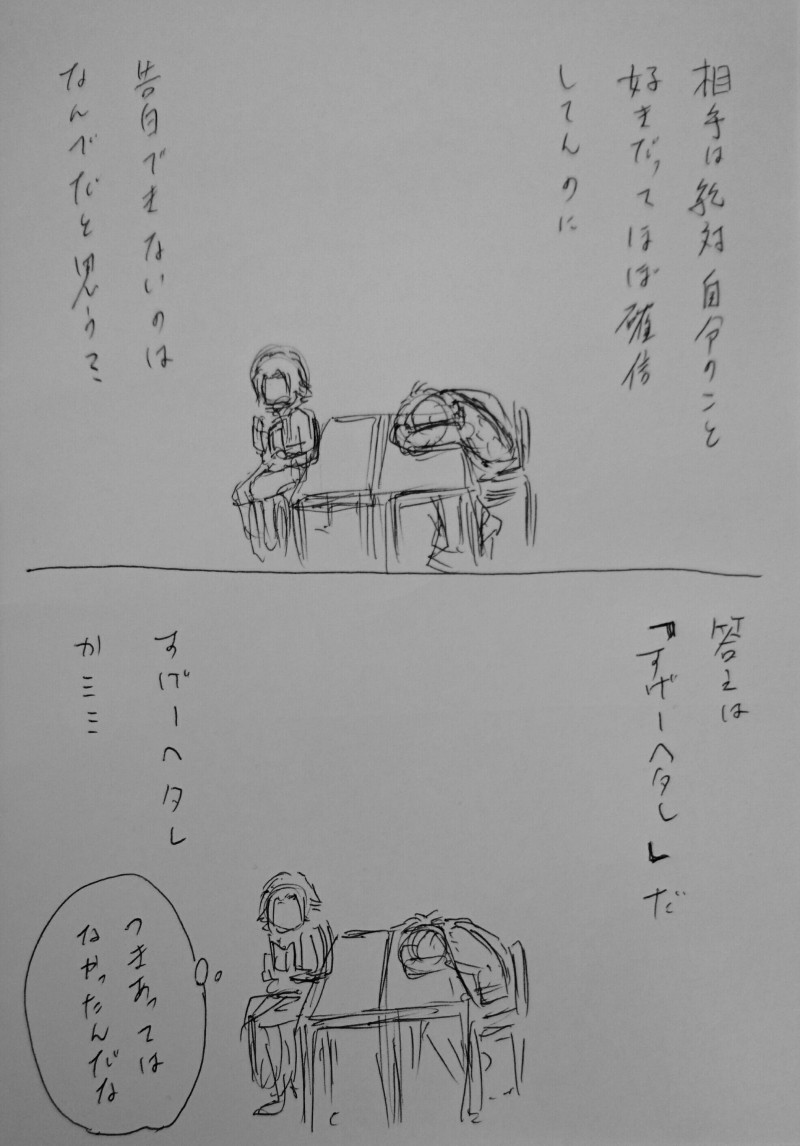 相手は絶対自分のこと
好きだってほぼ確信
してんのに
告白できないのは
なんでだと思う…
答えは
『すげーヘタレ』だ
すげーヘタレ
か……
つきあっては
なかったんだな